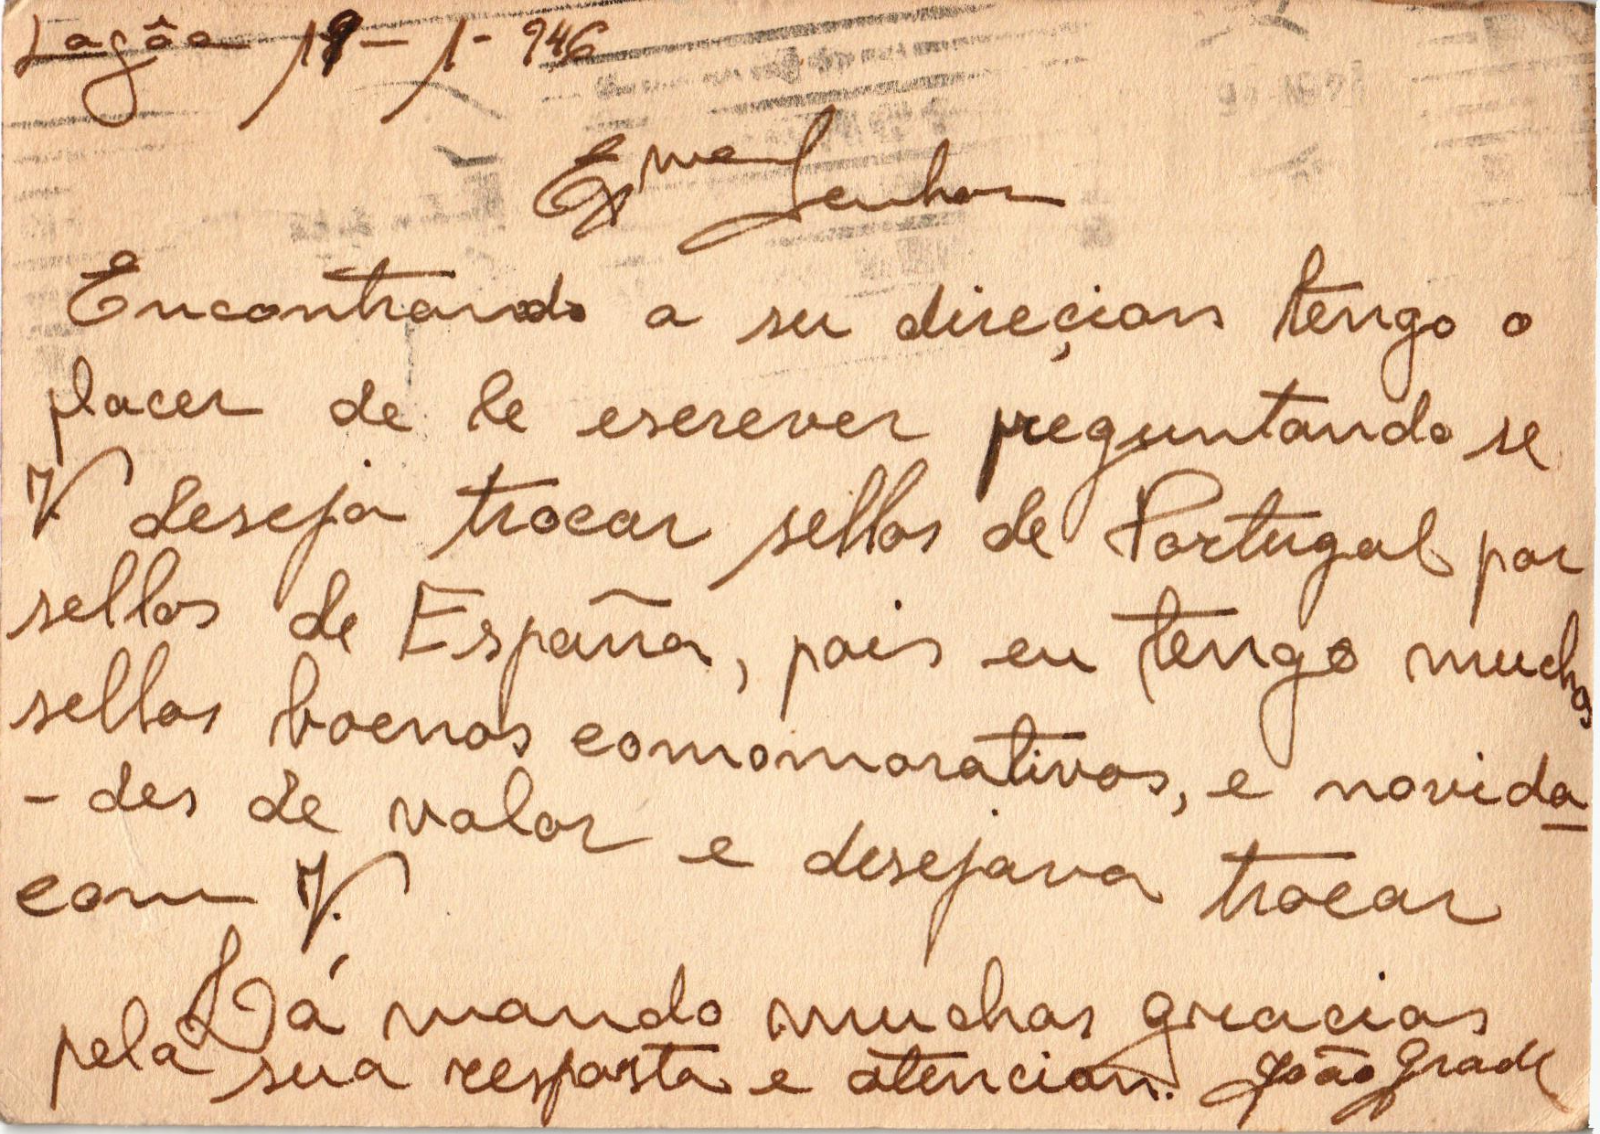 Lagôa 19-1-946
Exmo Senhor
Encontrando a su direçion tengo o
placer de le escrever preguntando se
V. deseja trocar sellos de Portugal por
sellos de España, pois eu tengo muchos
sellos boenos comomorativos, e novida
-des de valor e desejava trocar
com V.
Já mando muchas gracias
pela sua resposta e atencion. João Grade